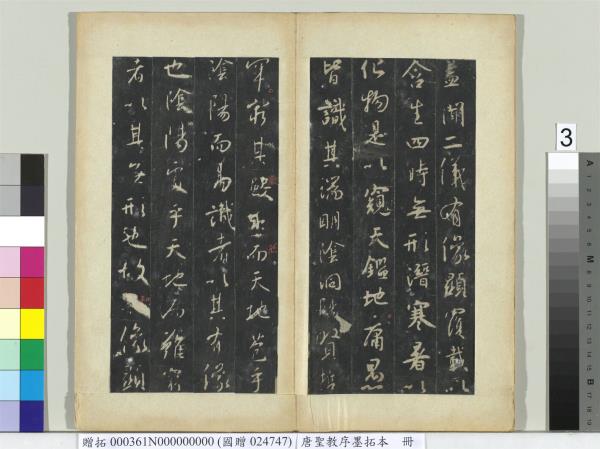 蓋聞二儀有像顯覆載以
含生四時無形潛寒暑以
化物是以窺天鑑地庸愚
皆識其端明陰洞陽賢哲
罕窮其數然而天地苞乎
陰陽而易識者以其有像
也陰陽處乎天地而難窮
者以其無形也故像顯
3
贈拓 000361N000000000 (國贈 024747) 唐聖教序墨拓本 冊
A 1 2 3 4 5 6 M 8 9 10 11 12 13 14 15 B 17 18 19